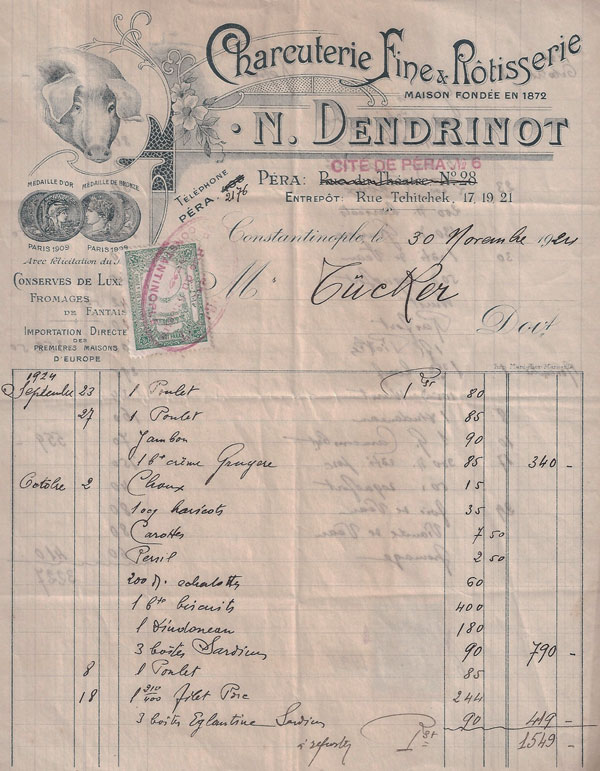 Charcuterie Fine & Rôtisserie
MAISON FONDÉE EN 1872
N. DENDRINOT
CITÉ DE PÉRA No 6
TÉLÉPHONE
PÉRA: 2176
PÉRA: Rue du Théatre No 28
ENTREPÔT: RUE TCHITCHEK, 17 19 21
MÉDAILLE D'OR MÉDAILLE DE BRONZE
PARIS 1909 PARIS
Avec félicitation du
CONSERVES DE LUXE
FROMAGES
DE FANTAIS
IMPORTATION DIRECTE
DES
PREMIÈRES MAISONS
D'EUROPE
Constantinople le 30 Novembre 1924
M Tücker
Doit
1924
Septembre 23 1 Poulet 80
27 1 Poulet 85
Jambon 90
1 bte crème Gruyere 85 340 -
Octobre 2 Choux 15
haricots 35
Carottes 7 50
Persil 2 50
200 echalottes 60
1 bte biscuits 400
1 Dindoneau 180
3 boîtes Sardines 90 790 -
8 1 Poulet 85
18 1 310/400 filet Porc 244
3 boîtes Eglantine Sardines 90 419 -
à reporter 1549 -